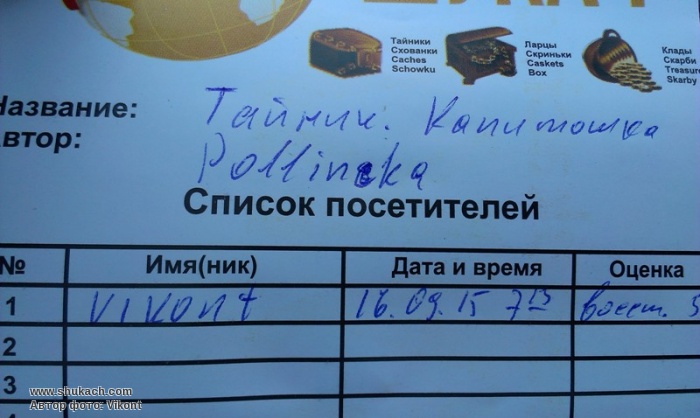 Тайники
Схованки
Caches
Schowku
Ларцы
Скриньки
Caskets
Box
Клады
Скарби
Treasure
Skarby
Название: Тайник. Капитошка
Автор: Pollineka
Список посетителей
№ Имя(ник) Дата и время Оценка
1 VIKONT 16.09.15 7 13 восст. 5
2
3
www.shukach.com
Автор фото: Vikont